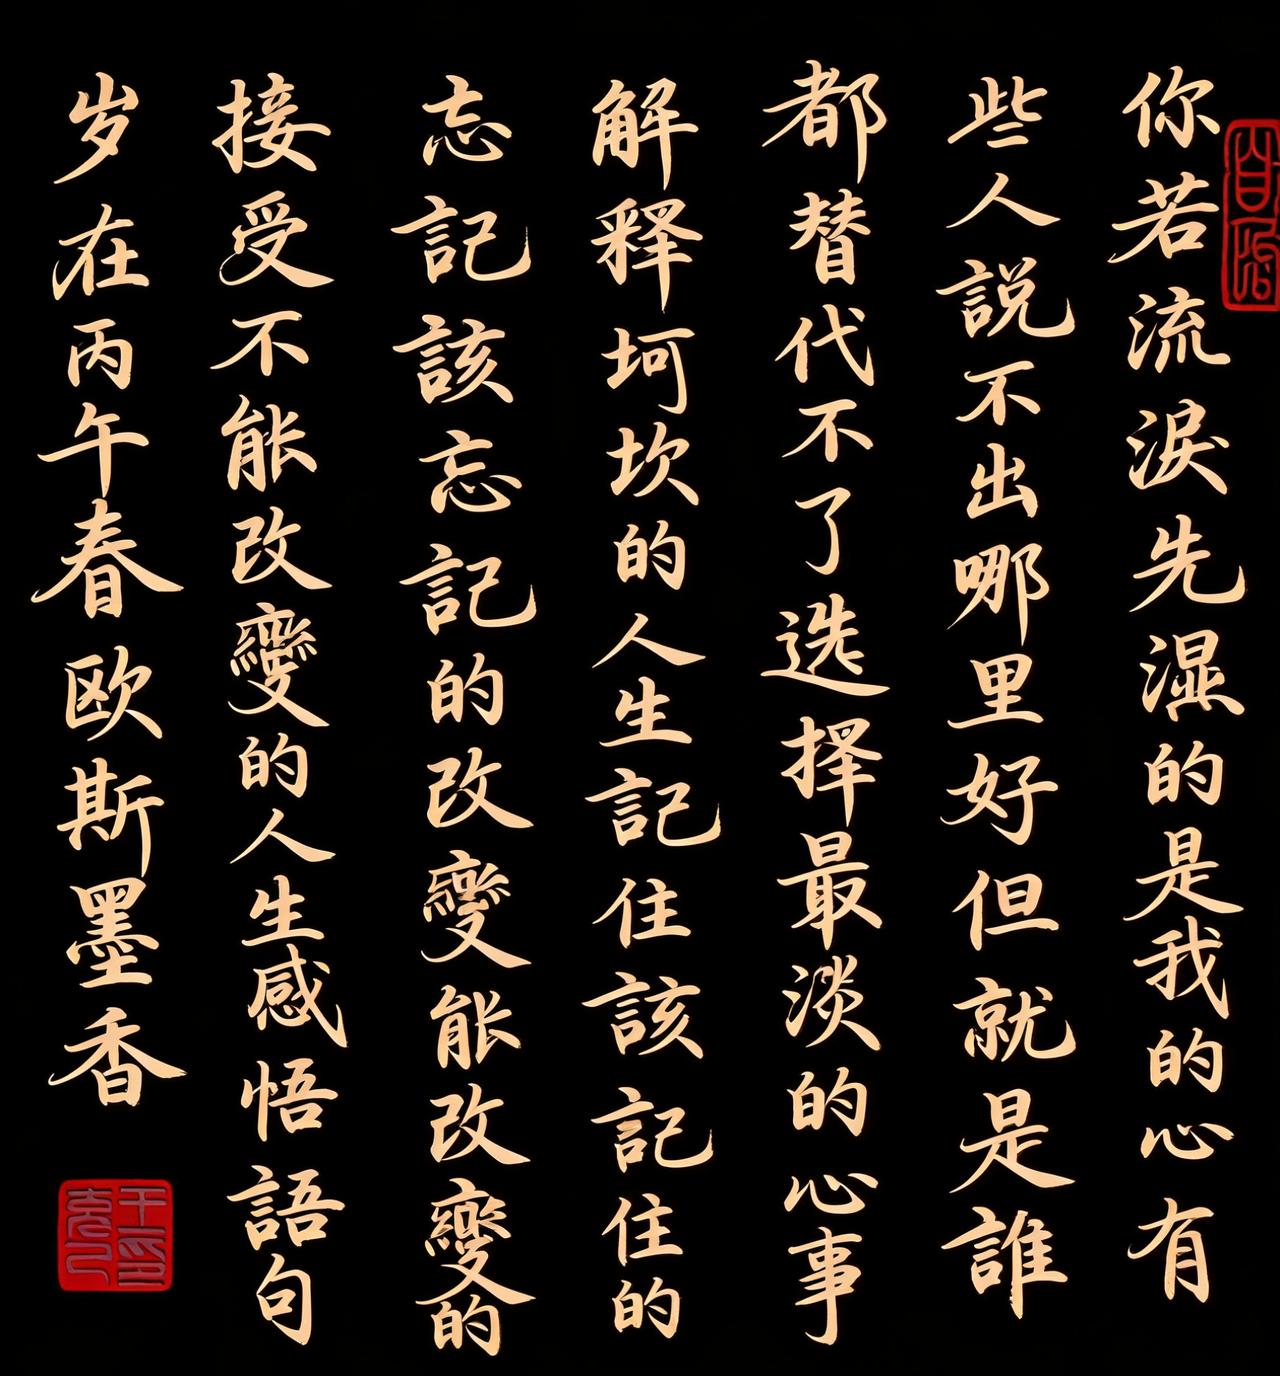 你若流淚先湿的是我的心有
些人説不出哪里好但就是誰
都替代不了选择最淡的心事
解释坷坎的人生記住該記住的
忘記該忘記的改變能改變的
接受不能改變的人生感悟語句
岁在丙午春欧斯墨香